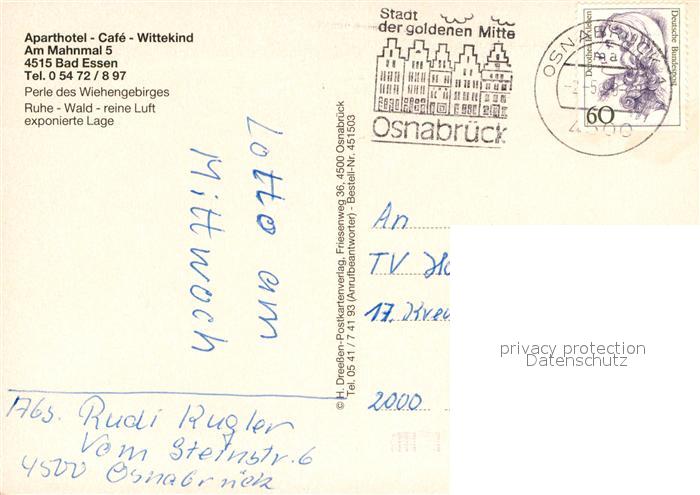 Aparthotel - Café - Wittekind
Am Mahnmal 5
4515 Bad Essen
Tel. 0 54 72 / 8 97
Perle des Wiehengebirges
Ruhe - Wald - reine Luft
exponierte Lage
Stadt
der goldenen Mitte
Osnabrück
OSNABRÜCK 1
4500
Dorothea Erxleben
Deutsche Bundespost
60
Lotto am
Mittwoch
© H. Dreeßen-Postkartenverlag, Friesenweg 36, 4500 Osnabrück
Tel. 05 41 / 7 41 93 (Anrufbeantworter) - Bestell-Nr. 451503
An
TV
17. Kreu
2000
privacy protection
Datenschutz
Abs. Rudi Kugler
Vom Steinstr. 6
4500 Osnabrück